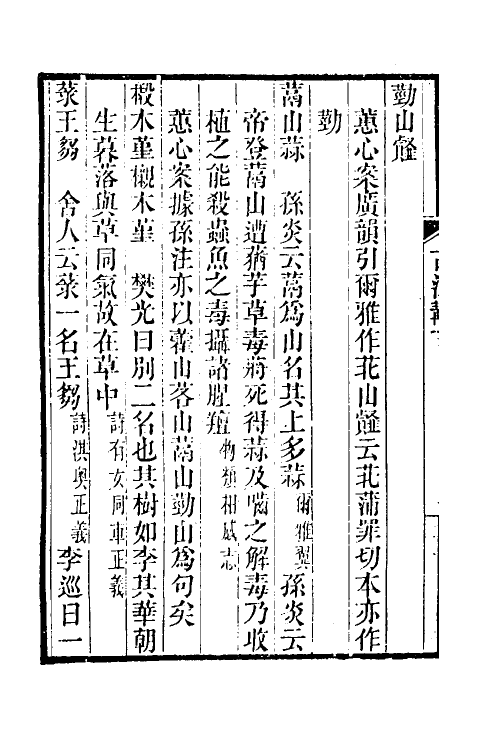 葝山䪥
蕙心案廣韻引爾雅作茘山䪥云茘蒲罪切本亦作
葝
蒚山蒜　孫炎云蒚爲山名其上多蒜爾雅翼孫炎云
帝登蒚山遭蕕芋草毒蔣死得蒜及嚙之解毒乃收
植之能殺蟲魚之毒攝諸腥羶物類相感志
蕙心案據孫注亦以藿山茖山蒚山葝山爲句矣
椵木堇櫬木堇　樊光曰別二名也其樹如李其華朝
生暮落與草同氣故在草中詩有女同車正義
菉王芻　舍人云菉一名王芻詩淇奧正義李巡曰一